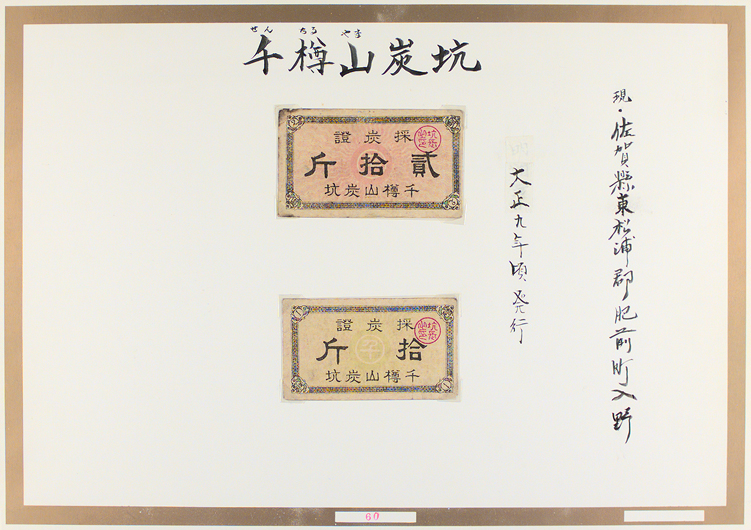 せんだるやま
千樽山炭坑
現・佐賀縣東松浦郡肥前町入野
大正九年頃発行
採炭證
貳拾斤
千樽山炭坑
採炭證
拾斤
千
千樽山炭坑
60